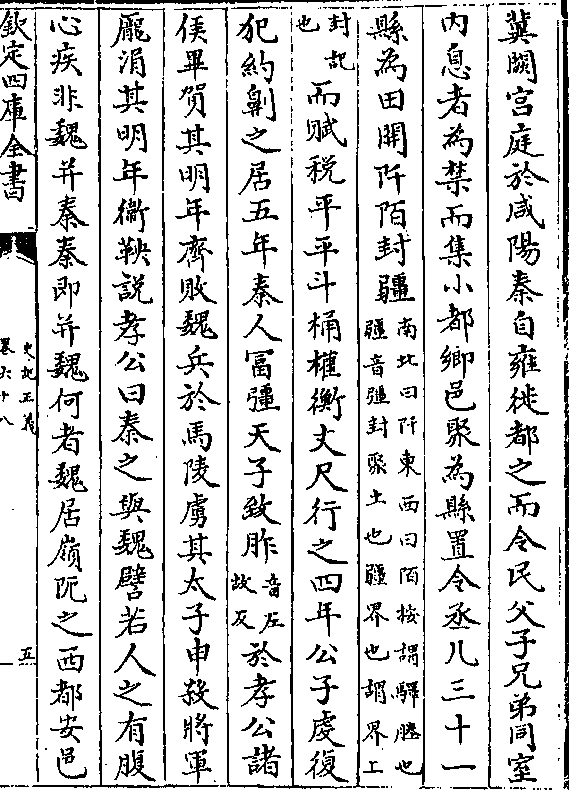 冀闕宫庭於咸陽秦自雍徙都之而令民父子兄弟同室
内息者為禁而集小都鄉邑聚為縣置令丞凡三十一
縣為田開阡陌封疆南北曰阡東西曰陌按謂驛塍也
疆音彊封聚土也疆界也謂界上
封記
也而賦税平平斗桶權衡丈尺行之四年公子虔復
犯約劓之居五年秦人富彊天子致胙音左
故反於孝公諸
侯畢賀其明年齊敗魏兵於馬陵虜其太子申殺將軍
龐涓其明年衞鞅説孝公曰秦之與魏譬若人之有腹
心疾非魏并秦秦即并魏何者魏居嶺阨之西都安邑
欽定四庫全書
史記正義
卷六十八
五